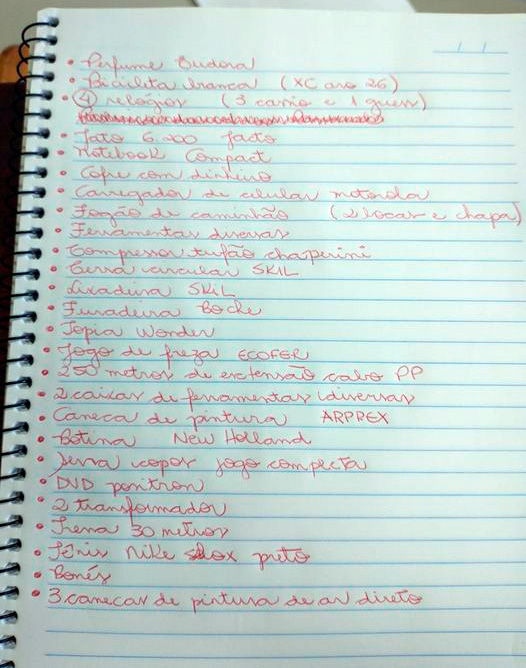 / /
• Perfume Eudora
• Bicicleta branca (XC aro 26)
• 4 relógios (3 casio e 1 guess)
• Jato 6.200 Jacto
• Notebook Compact
• Cofre com dinheiro
• Carregador de celular motorola
• Fogão de caminhão (2 bocas e chapa)
• Ferramentas diversas
• Compressor tufão chaperini
• Cerra circular SKIL
• Lixadeira SKIL
• Furadeira Boche
• Topia Wonder
• Jogo de freza ECOFER
• 250 metros de extensão cabo PP
• 2 caixas de ferramentas diversas
• Caneca de pintura ARPREX
• Botina New Holland
• Serra copos jogo completa
• DVD positron
• 2 transformador
• Trena 30 metros
• Tênis Nike shox preto
• Bonés
• 3 canecas de pintura de ar direto